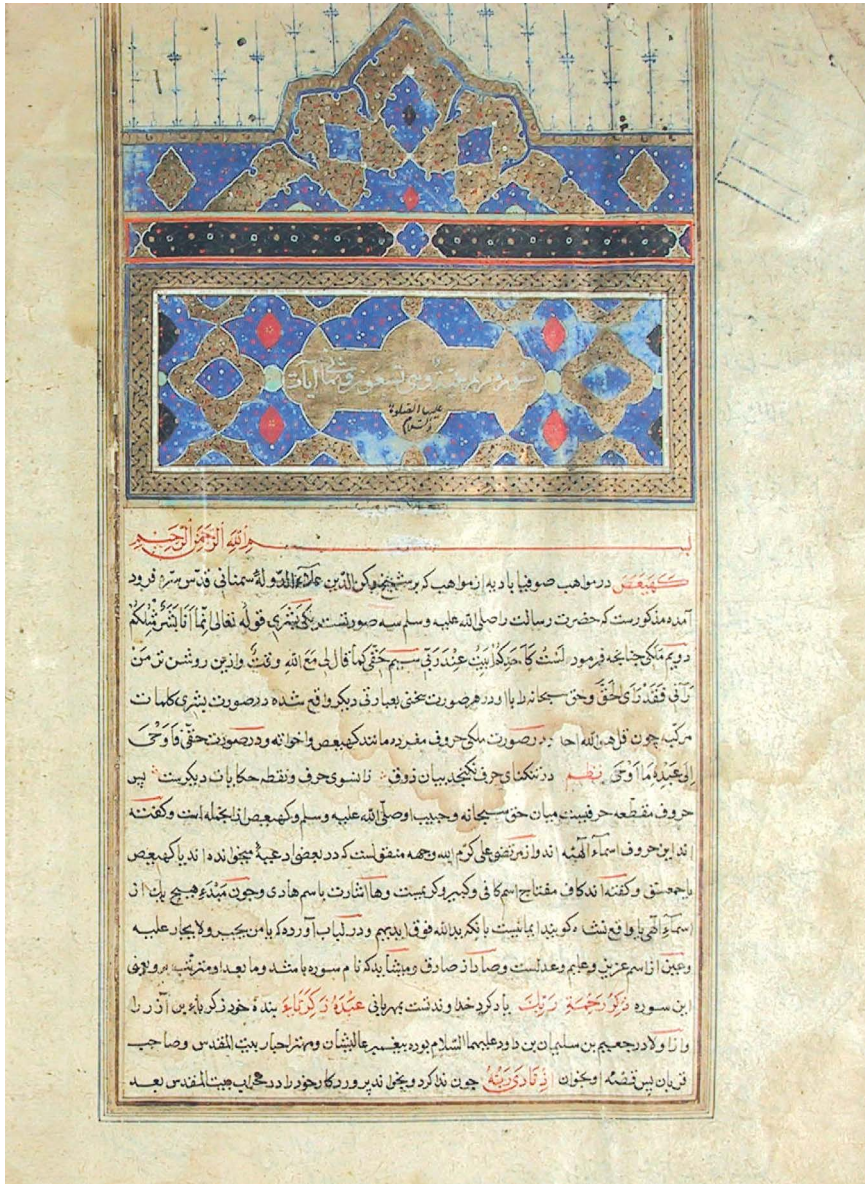 سورة مریم علیها و هی تسعون و ثمان آیات
علیها الصلوة
والسلام
بسم الله الرحمن الرحیم
کهیعص در مواهب صوفیا یادیه از مواهب که بر شیخ رکن الدین علاء الدوله سمنانی قدس سره فرود
آمده مذکورست که حضرت رسالت را صلی الله علیه وسلم سه صورتست یکی بشری قوله تعالی انما انا بشر مثلکم
دویم ملکی چنانچه فرمود لست کاحدکم ابیت عند ربی سیم حقی کما قال لی مع الله وقت و ازین روشن تر من
رآنی فقد رای الحق و حق سبحانه را با او در هر صورت سخنی بعبارتی دیکر واقع شده در صورت بشری کلمات
مرکبه چون قل هو الله احد و در صورت ملکی حروف مفرده مانند کهیعص و اخواته و در صورت حقی فاوحی
الی عبده ما اوحی نظم در تنکنای حرف نکنجد بیان ذوق زانسوی حرف و نقطه حکایات دیکرست پس
حروف مقطعه حرفیست میان حق سبحانه و حبیب او صلی الله علیه وسلم و کهیعص ازانجمله است و کفته
اند این حروف اسماء الهیه اند و از مرتضی علی کرم الله وجهه منقولست که در بعضی ادعیه میخوانده اند یا کهیعص
یا حمعسق و کفته اند کاف مفتاح اسم کافی و کبیر و کریمست و ها اشارت باسم هادی و چون مبتدء هیچ یک از
اسماء الهی یا واقع نشده کویند ایمائیست بانکه ید الله فوق ایدیهم و در لباب آورده که یا من یجیر ولا یجار علیه
و عین از اسم عزیز و علیم و عدلست و صاد از صادق و میشاید که نام سوره باشد و ما بعد او مترتب برو یعنی
این سوره ذکر رحمة ربک یاد کرد خداوندتست بمهربانی عبده زکریاء بندهٔ خود زکریاء بن آزر را
و از اولاد رجعیم بن سلیمان بن داود علیهما السلام بوده پیغمبر عالیشان و مهتر احبار بیت المقدس و صاحب
قربان پس قصهٔ او بخوان اذ نادی ربه چون ندا کرد و بخواند پروردکار خود را در محراب بیت المقدس بعد